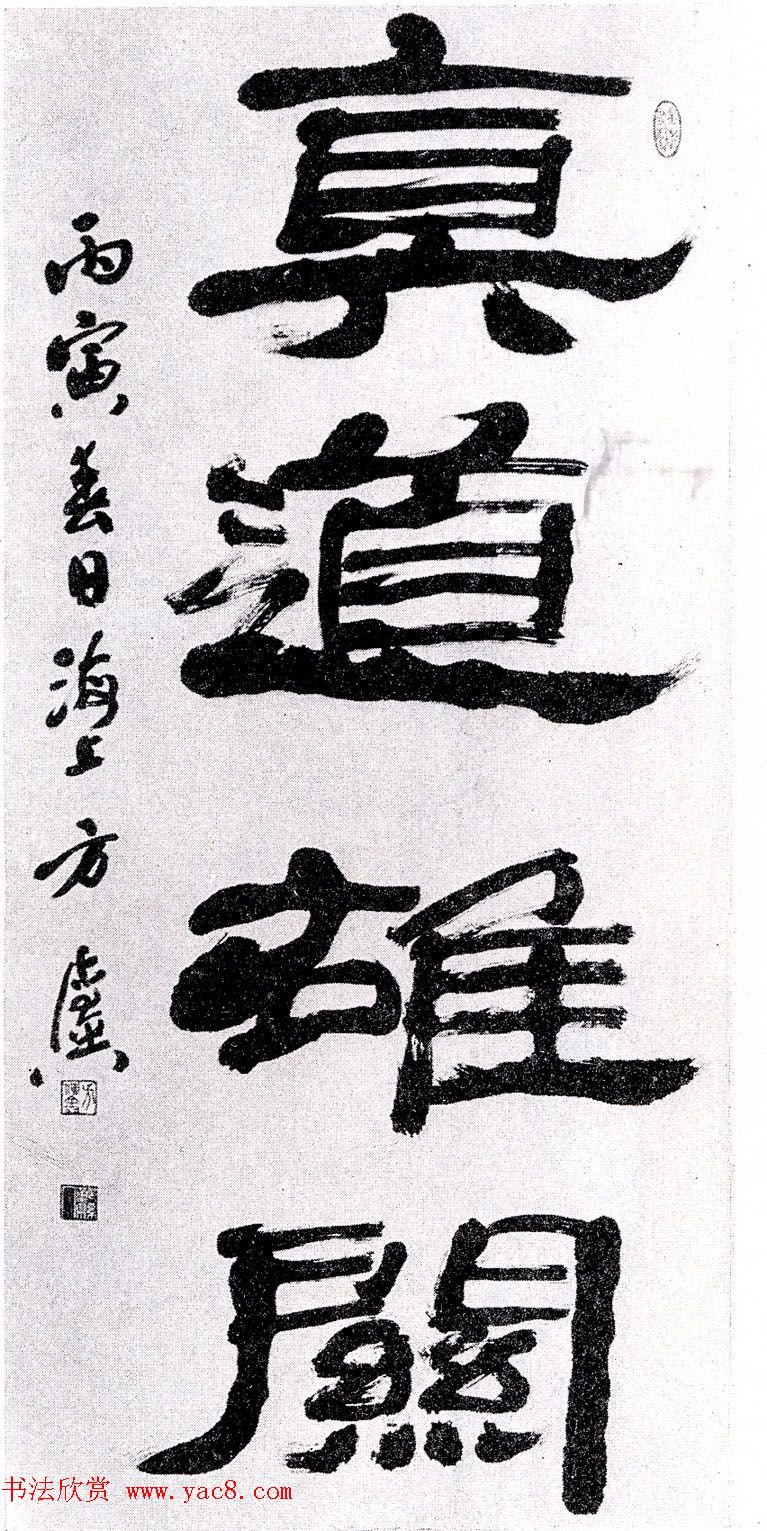 真道雄關
丙寅春日海上方
书法欣赏 www.yac8.com